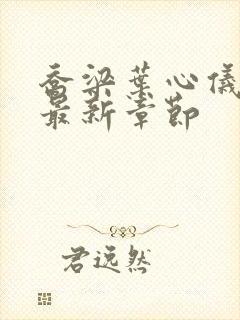 乔梁葉心儀
最新章節
君远然